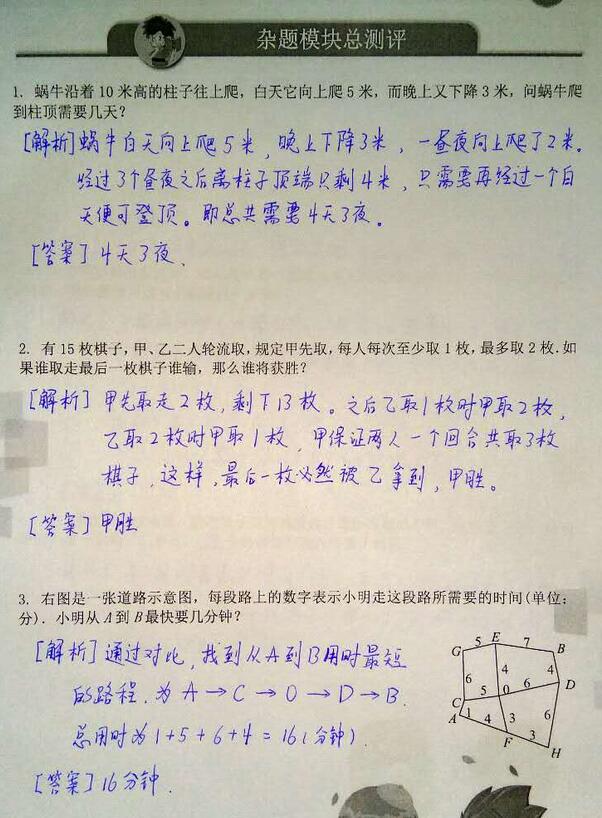 杂题模块总测评
1. 蜗牛沿着 10 米高的柱子往上爬，白天它向上爬 5 米，而晚上又下降 3 米，问蜗牛爬
到柱顶需要几天？
[解析]蜗牛白天向上爬5米，晚上下降3米，一昼夜向上爬了2米.
经过3个昼夜之后离柱子顶端只剩4米，只需要再经过一个白
天便可登顶。即总共需要4天3夜。
[答案]4天3夜、
2. 有 15 枚棋子，甲、乙二人轮流取，规定甲先取，每人每次至少取 1 枚，最多取 2 枚.如
果谁取走最后一枚棋子谁输，那么谁将获胜？
[解析] 甲先取走2枚，剩下13枚。之后乙取1枚时甲取2枚，
乙取2枚时甲取1枚，甲保证两人一个回合共取3枚
棋子，这样，最后一枚必然被乙拿到，甲胜。
[答案]甲胜
3. 右图是一张道路示意图，每段路上的数字表示小明走这段路所需要的时间(单位：
分). 小明从 A 到 B 最快要几分钟？
[解析]通过对比，找到从A到B用时最短
的路程.为 A → C → O → D → B.
总用时为 1+5+6+4 = 16(分钟).
[答案]16分钟.
G 5 E 7 B
6 4 4
C 5 0 6 D
A 1 4 3 6
F 3 H